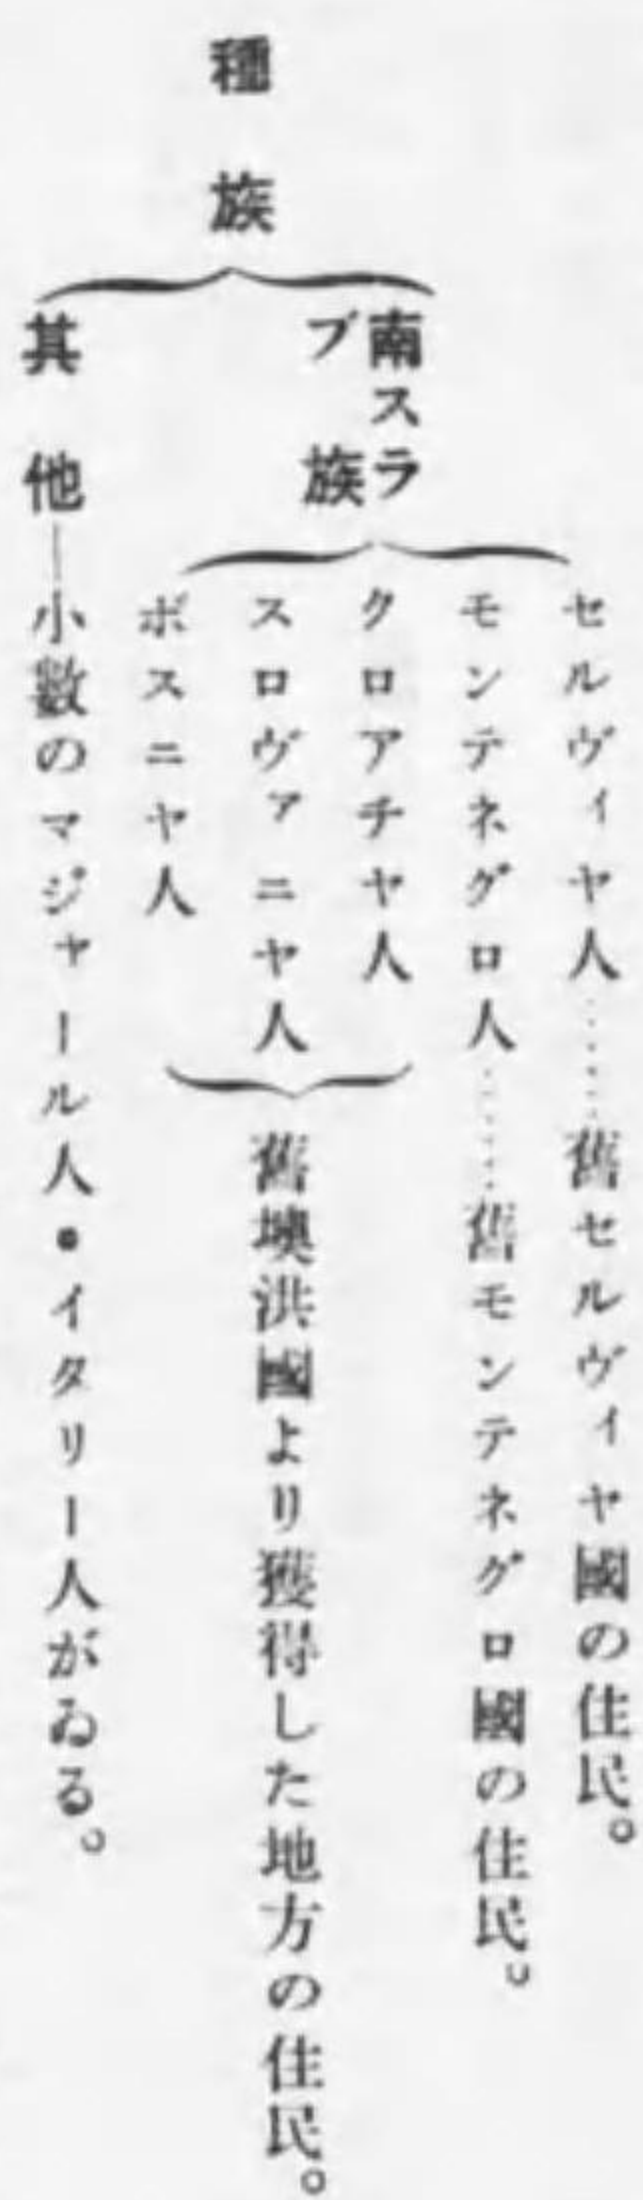 種族
南スラブ族
セルヴィヤ人……舊セルヴィヤ國の住民。
モンテネグロ人……舊モンテネグロ國の住民。
クロアチヤ人
スロヴァニヤ人
ボスニヤ人
舊墺洪國より獲得した地方の住民。
其他―小數のマジャール人・イタリー人がゐる。